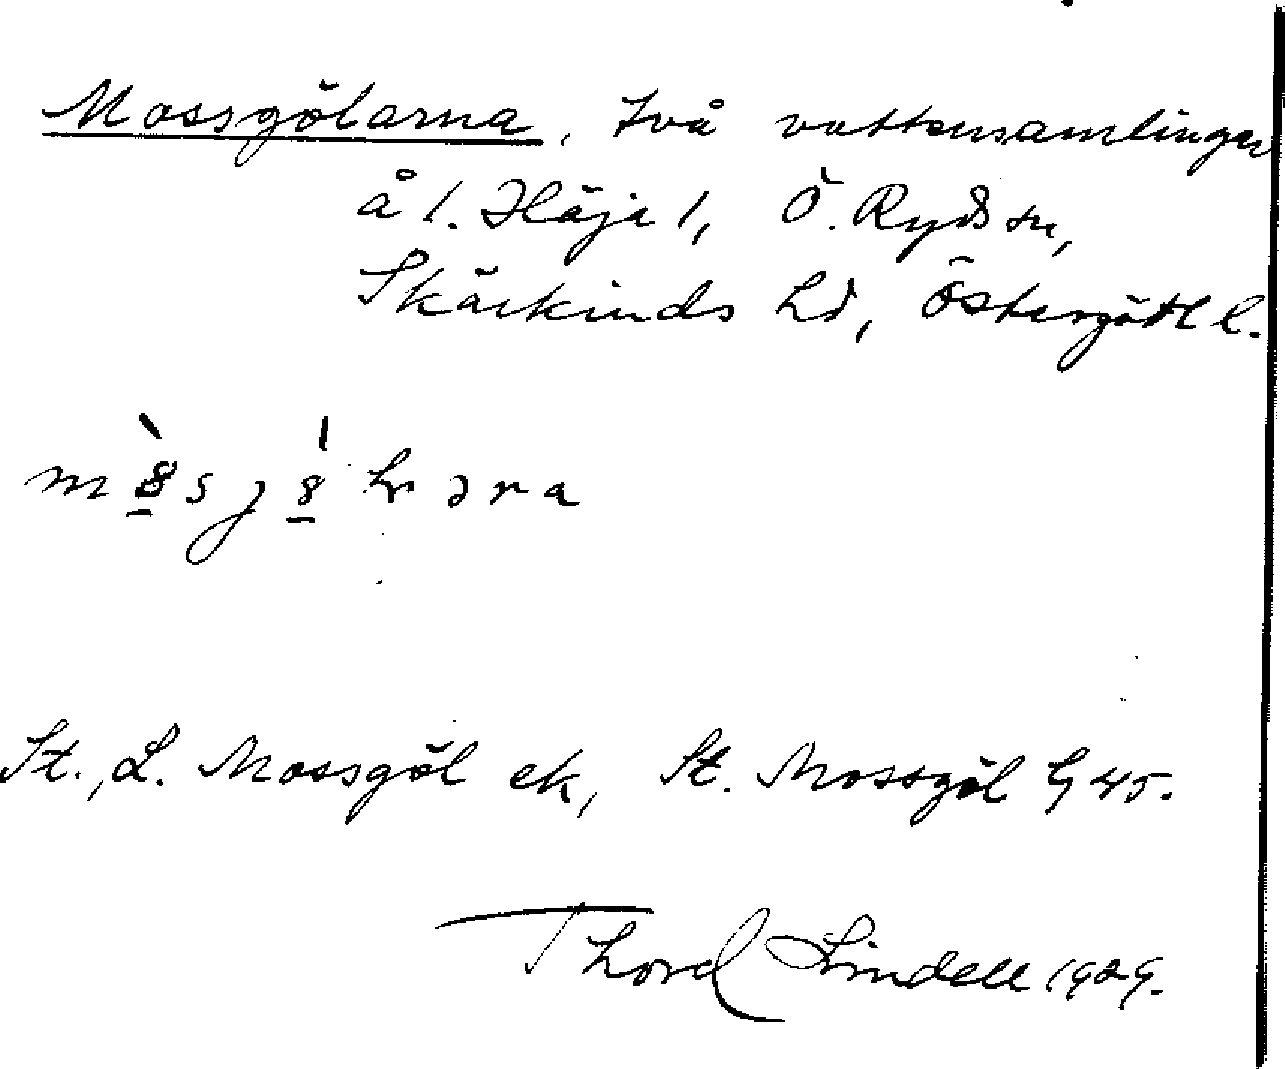 Mossgölarna, två vattensamlingar
å 1. Häje 1, Ö. Ryds sn,
Skärkinds hd, Östergötl l.
St., L. Mossgöl ek, St. Mossgöl G 45.
Thord Lindell 1929.